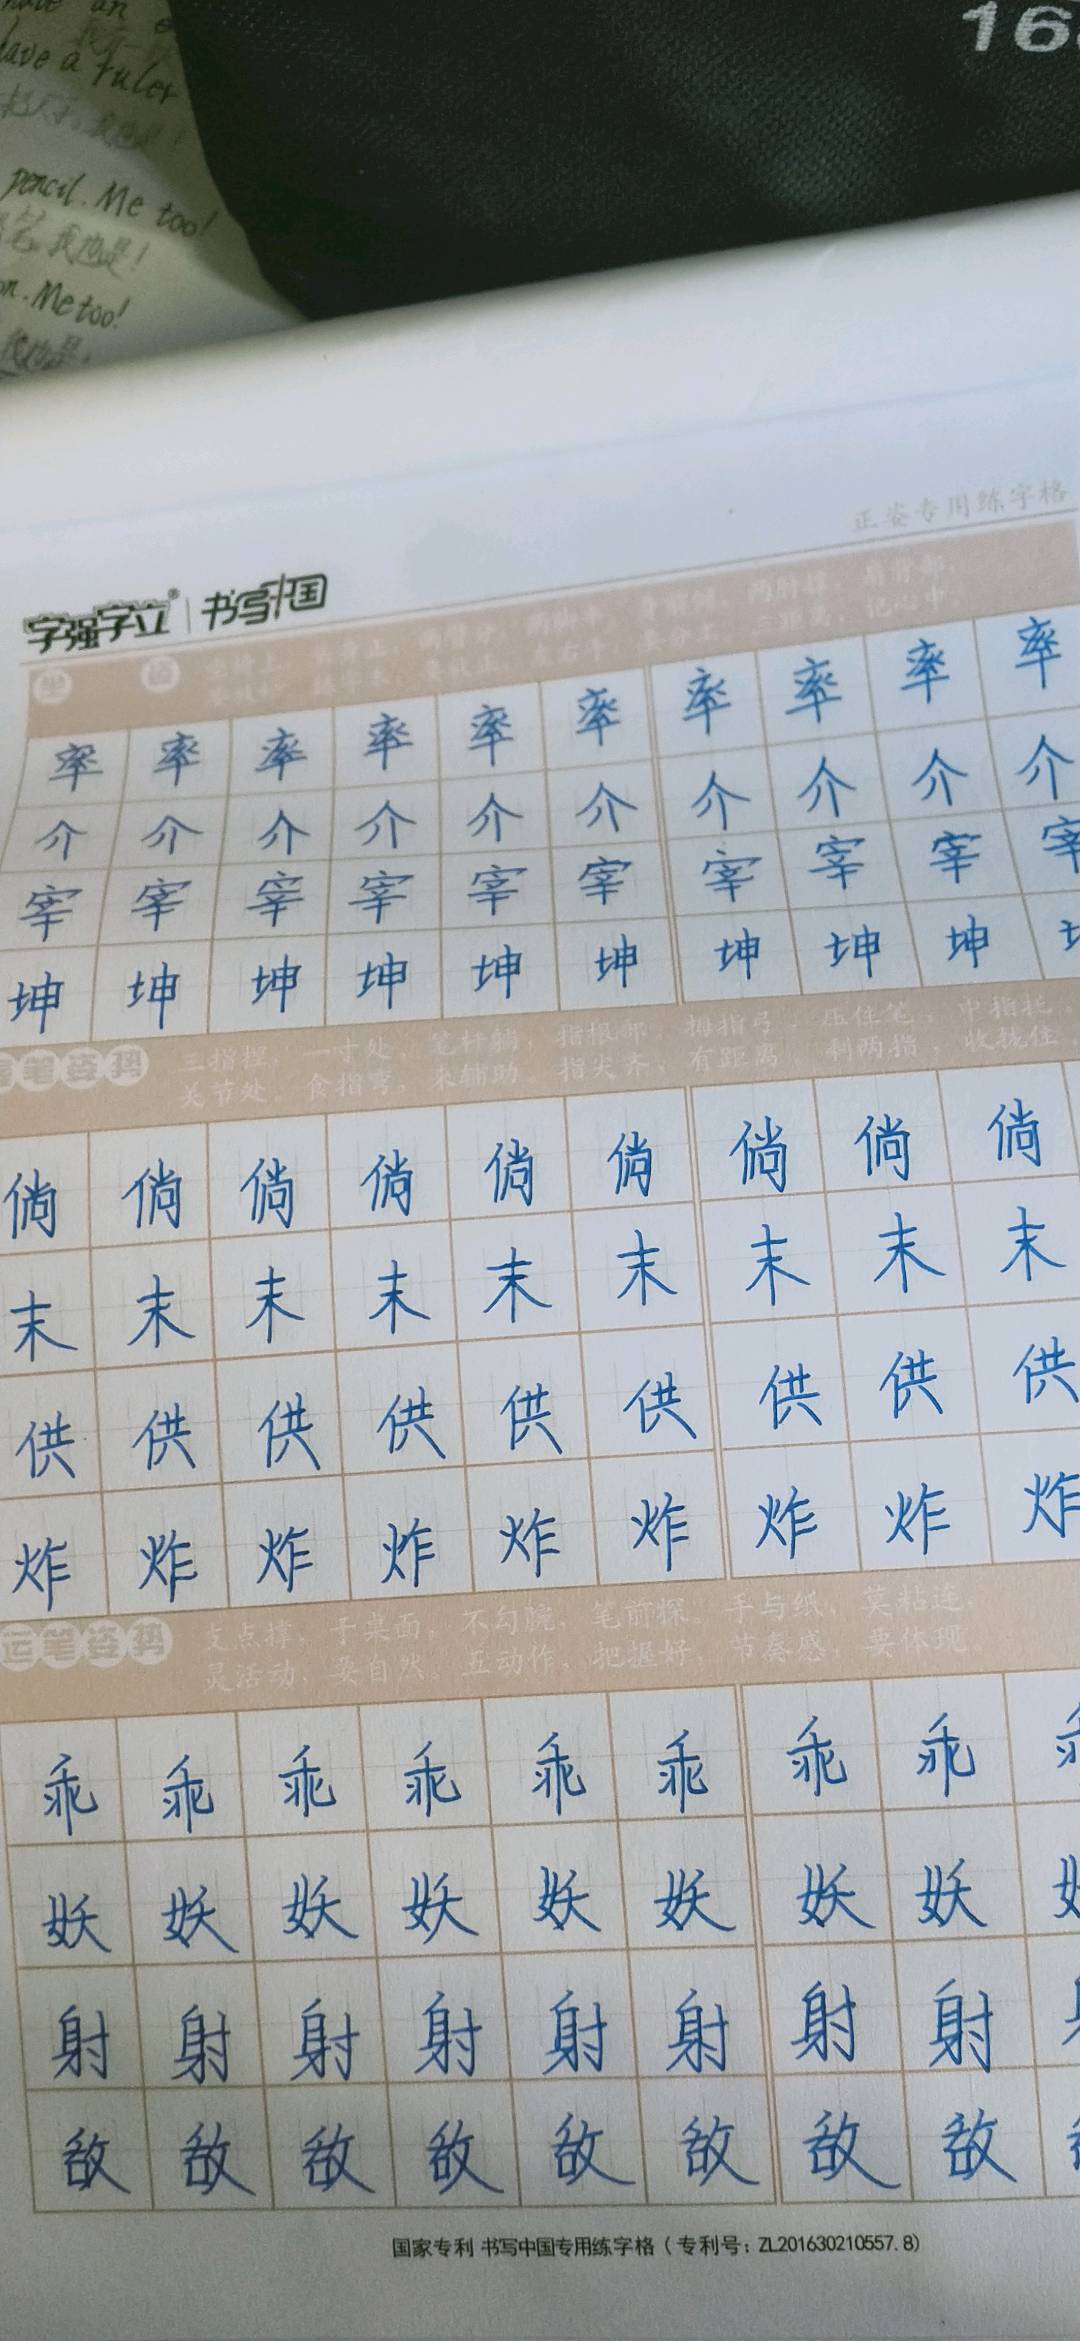 have an
have a ruler
pencil. Me too!
笔。我也是!
on. Me too!
我也是!
16
正姿专用练字格
字强字立® 书写中国
坐 姿
率 率 率 率 率 率 率 率 率 率
介 介 介 介 介 介 介 介 介 介
宰 宰 宰 宰 宰 宰 宰 宰 宰 宰
坤 坤 坤 坤 坤 坤 坤 坤 坤
握笔姿势 三指捏,一寸处,笔杆躺,指根部。拇指弓,压住笔,中指托,
关节处。食指弯,来辅助。指尖齐,有距离,剩两指,收拢住。
倘 倘 倘 倘 倘 倘 倘 倘 倘
末 末 末 末 末 末 末 末 末
供 供 供 供 供 供 供 供 供
炸 炸 炸 炸 炸 炸 炸 炸 炸
运笔姿势 支点撑,于桌面,不勾腕,笔前探。手与纸,莫粘连,
灵活动,要自然。五动作,把握好,节奏感,要体现。
乖 乖 乖 乖 乖 乖 乖 乖
妖 妖 妖 妖 妖 妖 妖 妖
射 射 射 射 射 射 射 射
敌 敌 敌 敌 敌 敌 敌 敌
国家专利 书写中国专用练字格(专利号:ZL201630210557.8)